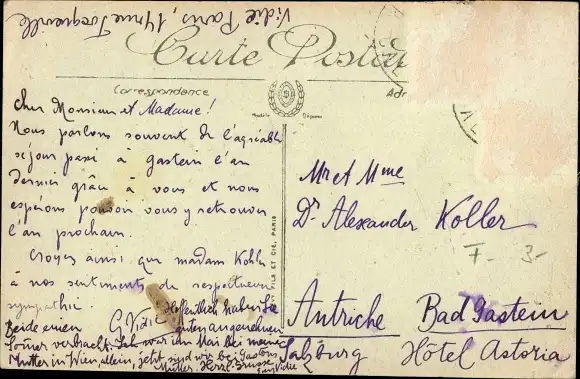 Vidié Paris, 14 rue Tocqueville
Carte Postale
Correspondance
Adr
Cher Monsieur et Madame!
Nous parlons souvent de l'agréable
séjour passé à gastein l'an
dernier grâce à vous et nous
espérons pouvoir vous y retrouver
l'an prochain.
Croyez ainsi que madam Kohler
à nos sentiments de respectueuse
sympathie.
G. Vidié
Hoffentlich haben Sie
Beide einen guten angenehmen
Sommer verbracht. Ich war im Mai bei meiner
Mutter in Wien, allein, jetzt sind wir bei Gastons
Mutter. Herzl. Grüsse
Vidié
FILS ET CIE, PARIS
Mr et Mme
Dr Alexander Koller
F. 3-
Autriche Bad Gastein
Salzburg Hôtel Astoria